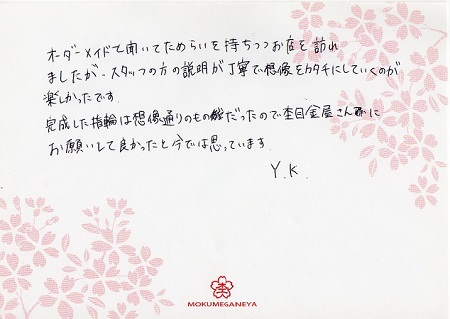 オーダーメイドと聞いてためらいを持ちつつお店を訪れ
ましたが、スタッフの方の説明が丁寧で想像をカタチにしていくのが
楽しかったです。
完成した指輪は想像通りのものだったので杢目金屋さんに
お願いして良かったと今では思っています。
Y.K.
MOKUMEGANEYA